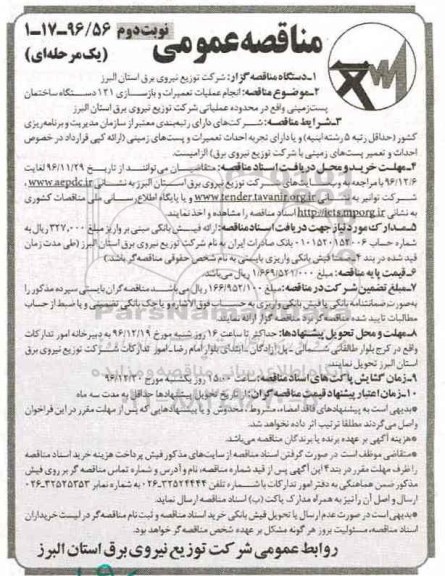 مناقصه عمومی
نوبت دوم
۱-۱۷-۹۶/۵۶
(یک مرحله‌ای)
۱ـ دستگاه مناقصه گزار: شرکت توزیع نیروی برق استان البرز
۲ـ موضوع مناقصه: انجام عملیات تعمیرات و بازسازی ۱۲۱ دستگاه ساختمان
پست‌زمینی واقع در محدوده عملیاتی شرکت توزیع نیروی برق استان البرز
۳ـ شرایط مناقصه: شرکت‌های دارای رتبه‌بندی معتبر از سازمان مدیریت و برنامه‌ریزی
کشور (حداقل رتبه ۵ رشته ابنیه) و یا دارای تجربه احداث تعمیرات و پست‌های زمینی (ارائه کپی قرارداد در خصوص
احداث و تعمیر پست‌های زمینی با شرکت توزیع نیروی برق) الزامیست.
۴ـ مهلت خرید و محل دریافت اسناد مناقصه: متقاضیان می‌توانند از تاریخ ۹۶/۱۱/۲۹ لغایت
۹۶/۱۲/۶ با مراجعه به وب سایت‌های شرکت توزیع نیروی برق استان البرز به نشانی www.aepdc.ir،
شرکت توانیر به نشانی www.tender.tavanir.org.ir و یا پایگاه اطلاع رسانی ملی مناقصات کشوری
به نشانی http://iets.mporg.ir اسناد مناقصه را مشاهده و اخذ نمایند.
۵ـ مدارک مورد نیاز جهت دریافت اسناد مناقصه: ارائه فیش بانکی مبنی بر واریز مبلغ ۳۲۷/۰۰۰ ریال به
شماره حساب ۰۱۰۱۵۲۰۱۵۲۰۰۶ بانک صادرات ایران به نام شرکت توزیع نیروی برق استان البرز (طی مدت زمان
قید شده در بند ۴) ضمنا فیش بانکی واریزی بایستی به نام شخص حقوقی مناقصه‌گر باشد.
۶ـ قیمت پایه مناقصه: مبلغ ۱/۶۶۹/۵۲۱/۰۰۰ ریال می‌باشد.
۷ـ مبلغ تضمین شرکت در مناقصه: مبلغ ۱۶۶/۹۵۲/۱۰۰ ریال می‌باشد. مناقصه گران بایستی سپرده مذکور را
به صورت ضمانتنامه بانکی یا فیش بانکی واریزی به حساب فوق الاشاره و یا چک بانکی تضمینی و یا ضبط از حساب
مطالبات تایید شده مناقصه‌گر، به مناقصه گزار ارائه نمایند.
۸ـ مهلت و محل تحویل پیشنهادها: حداکثر تا ساعت ۱۶ روز شنبه مورخ ۹۶/۱۲/۱۹ به دبیرخانه امور تدارکات
واقع در کرج بلوار طالقانی شمالی - پل آزادگان - ابتدای بلوار امام رضا - امور تدارکات شرکت توزیع نیروی برق
استان البرز تحویل نمایند.
۹ـ زمان گشایش پاکت‌های اسناد مناقصه: ساعت ۱۵:۰۰ روز یکشنبه مورخ ۹۶/۱۲/۲۰
۱۰ـ زمان اعتبار پیشنهاد قیمت مناقصه گران: از تاریخ تحویل پیشنهادها حداقل به مدت سه ماه
*بدیهی است به پیشنهادهای فاقد امضاء، مشروط، مخدوش و پیشنهادهایی که پس از مهلت مقرر در این فراخوان
واصل می‌گردند مطلقا ترتیب اثر داده نخواهد شد.
*هزینه آگهی بر عهده برنده یا برندگان مناقصه می‌باشد.
*متقاضی موظف است در صورت گرفتن اسناد مناقصه از سایت‌های مذکور فیش پرداخت هزینه خرید اسناد مناقصه
را ظرف مهلت مقرر در بند ۴ این آگهی پس از قید شماره مناقصه، نام و آدرس و شماره تماس مناقصه گر بر روی فیش
مذکور ضمن هماهنگی به دفتر امور تدارکات با شماره تلفن ۳۲۵۲۴۴۴۴-۰۲۶ به شماره نمابر ۳۲۵۲۵۳۵۳-۰۲۶
ارسال و اصل آن را نیز به همراه مدارک پاکت (ب) اسناد مناقصه ارسال نماید.
*بدیهی است در صورت عدم ارسال یا تحویل فیش بانکی خرید اسناد مناقصه و ثبت نام مناقصه‌گر در لیست خریداران
اسناد مناقصه، مسئولیت بروز هر گونه مشکل بر عهده شخص مناقصه گر خواهد بود.
روابط عمومی شرکت توزیع نیروی برق استان البرز